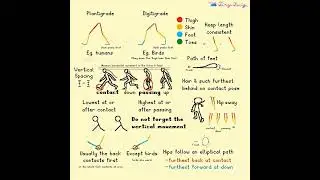 Plantigrade
Digitigrade
Thigh
Shin
Feet
Toes
Keep length
consistent
Eg. humans
Eg. Birds
Path of feet
Vertical
Spacing
contact down passing up
Nor is furthest
behind on contact pose
Lowest at or
after contact
Highest at or
after passing
Hip sway
Do not forget the
vertical movement
Usually the back
contacts first
Except birds
Hips follow an elliptical path
-furthest back at contact
-furthest forward at down